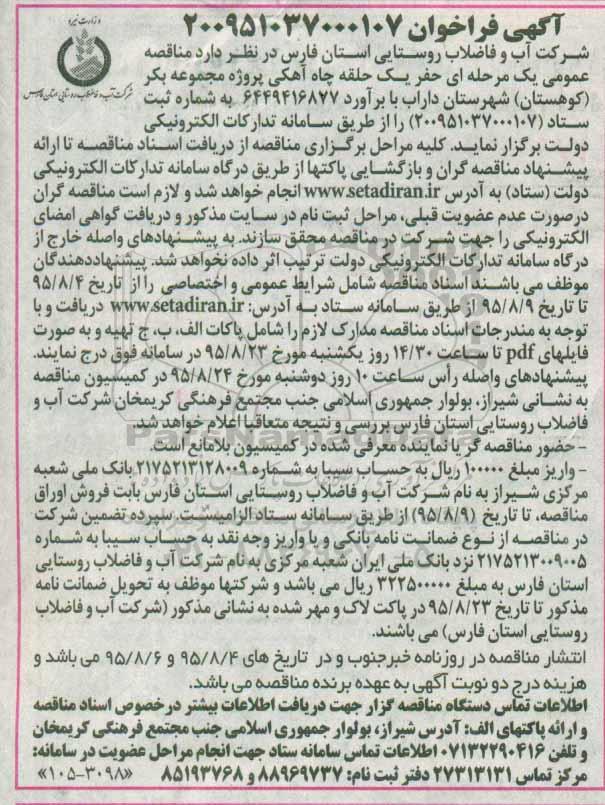 آگهی فراخوان ۲۰۰۹۵۱۰۳۷۰۰۰۱۰۷
وزارت نیرو
شرکت آب و فاضلاب روستایی استان فارس
شرکت آب و فاضلاب روستایی استان فارس در نظر دارد مناقصه
عمومی یک مرحله ای حفر یک حلقه چاه آهکی پروژه مجموعه بکر
(کوهستان) شهرستان داراب با برآورد ۶۴۴۹۴۱۶۸۲۷ به شماره ثبت
ستاد (۲۰۰۹۵۱۰۳۷۰۰۰۱۰۷) را از طریق سامانه تدارکات الکترونیکی
دولت برگزار نماید. کلیه مراحل برگزاری مناقصه از دریافت اسناد مناقصه تا ارائه
پیشنهاد مناقصه گران و بازگشایی پاکتها از طریق درگاه سامانه تدارکات الکترونیکی
دولت (ستاد) به آدرس www.setadiran.ir انجام خواهد شد و لازم است مناقصه گران
درصورت عدم عضویت قبلی، مراحل ثبت نام در سایت مذکور و دریافت گواهی امضای
الکترونیکی را جهت شرکت در مناقصه محقق سازند. به پیشنهادهای واصله خارج از
درگاه سامانه تدارکات الکترونیکی دولت ترتیب اثر داده نخواهد شد. پیشنهاددهندگان
موظف می باشند اسناد مناقصه شامل شرایط عمومی و اختصاصی را از تاریخ ۹۵/۸/۴
تا تاریخ ۹۵/۸/۹ از طریق سامانه ستاد به آدرس: www.setadiran.ir دریافت و با
توجه به مندرجات اسناد مناقصه مدارک لازم را شامل پاکات الف، ب، ج تهیه و به صورت
فایلهای pdf تا ساعت ۱۴/۳۰ روز یکشنبه مورخ ۹۵/۸/۲۳ در سامانه فوق درج نمایند.
پیشنهادهای واصله رأس ساعت ۱۰ روز دوشنبه مورخ ۹۵/۸/۲۴ در کمیسیون مناقصه
به نشانی شیراز، بولوار جمهوری اسلامی جنب مجتمع فرهنگی کریمخان شرکت آب و
فاضلاب روستایی استان فارس بررسی و نتیجه متعاقبا اعلام خواهد شد.
- حضور مناقصه گر یا نماینده معرفی شده در کمیسیون بلامانع است.
- واریز مبلغ ۱۰۰۰۰۰ ریال به حساب سیبا به شماره ۲۱۷۵۲۱۳۱۲۸۰۰۹ بانک ملی شعبه
مرکزی شیراز به نام شرکت آب و فاضلاب روستایی استان فارس بابت فروش اوراق
مناقصه، تا تاریخ (۹۵/۸/۹) از طریق سامانه ستاد الزامیست. سپرده تضمین شرکت
در مناقصه از نوع ضمانت نامه بانکی و یا واریز وجه نقد به حساب سیبا به شماره
۲۱۷۵۲۱۳۰۰۹۰۰۵ نزد بانک ملی ایران شعبه مرکزی به نام شرکت آب و فاضلاب روستایی
استان فارس به مبلغ ۳۲۲۵۰۰۰۰۰ ریال می باشد و شرکتها موظف به تحویل ضمانت نامه
مذکور تا تاریخ ۹۵/۸/۲۳ در پاکت لاک و مهر شده به نشانی مذکور (شرکت آب و فاضلاب
روستایی استان فارس) می باشند.
انتشار مناقصه در روزنامه خبرجنوب و در تاریخ های ۹۵/۸/۴ و ۹۵/۸/۶ می باشد و
هزینه درج دو نوبت آگهی به عهده برنده مناقصه می باشد.
اطلاعات تماس دستگاه مناقصه گزار جهت دریافت اطلاعات بیشتر درخصوص اسناد مناقصه
و ارائه پاکتهای الف: آدرس شیراز، بولوار جمهوری اسلامی جنب مجتمع فرهنگی کریمخان
و تلفن ۰۷۱۳۲۲۹۰۴۱۶ اطلاعات تماس سامانه ستاد جهت انجام مراحل عضویت در سامانه:
مرکز تماس ۲۷۳۱۳۱۳۱ دفتر ثبت نام: ۸۸۹۶۹۷۳۷ و ۸۵۱۹۳۷۶۸ «۱۰۵-۳۰۹۸»